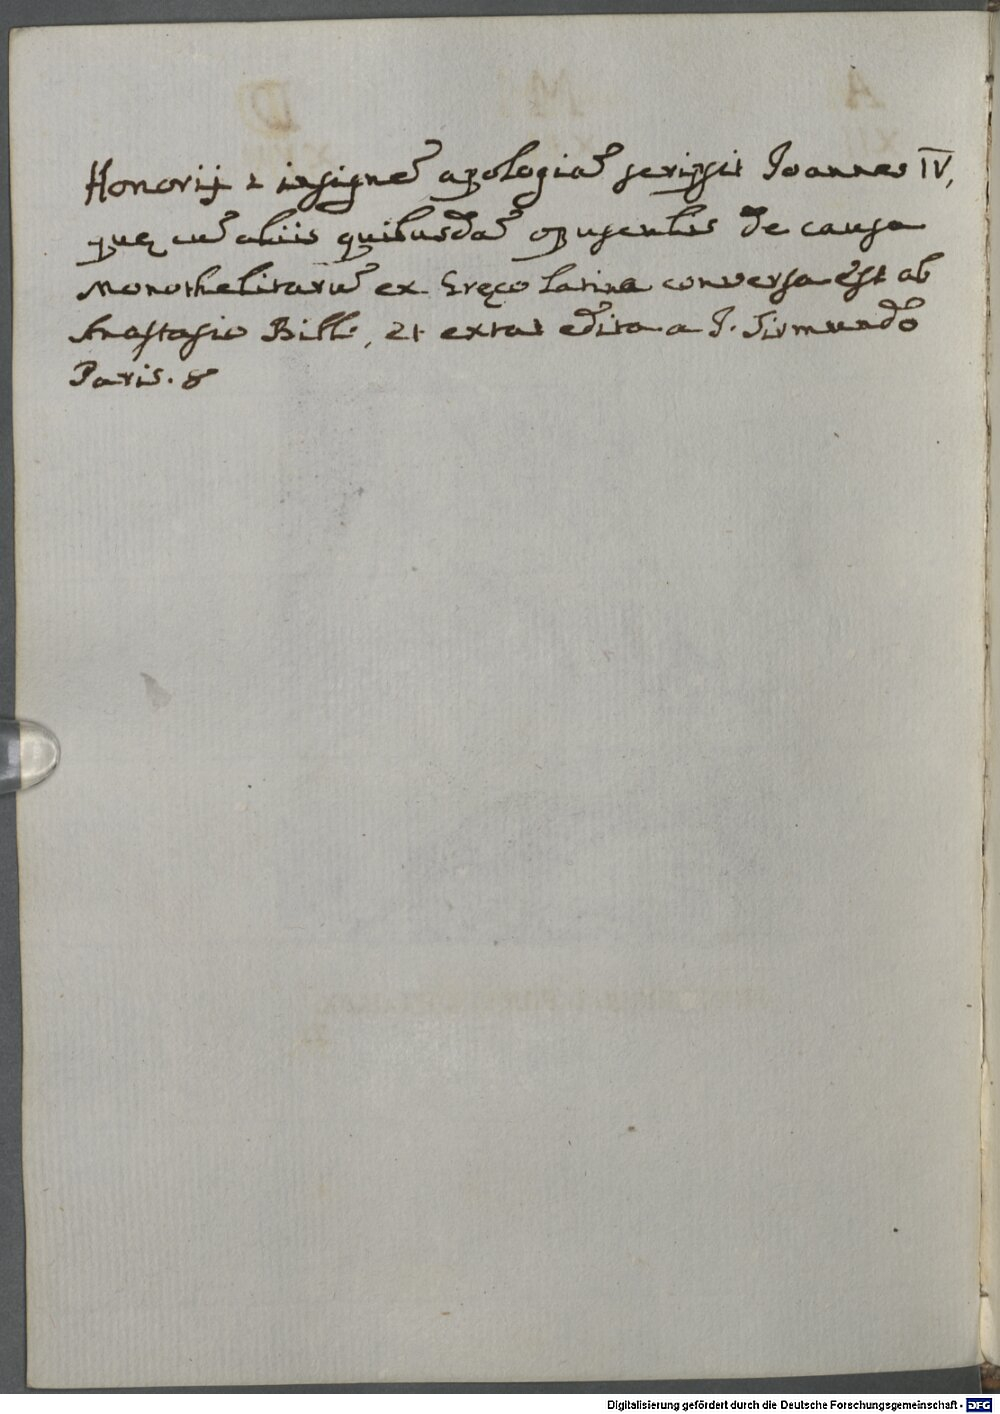 Honorij 2 insignē apologiā scripsit Joannes IV,
quę cū aliis quibusdā opusculis de causa
Monothelitarū ex Gręco latina conversa est ab
Anastasio Bibl., et extat edita a J. Sirmundo
Paris. 8
Digitalisierung gefördert durch die Deutsche Forschungsgemeinschaft - DFG